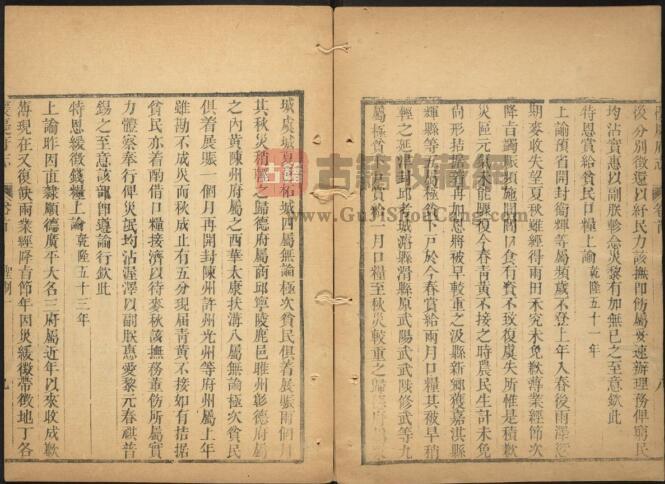 後分別徵還以紓民力該撫即飭屬妥速辦理務俾窮民
均沾實惠以副朕軫念災黎有加無已之至意欽此
特恩賞給貧民口糧上諭乾隆五十一年
上諭豫省開封衛輝等屬頻歲不登上年入春後雨澤
期麥收失望夏秋雖經得雨田禾究未免歉薄業經節次
降旨蠲賑頻施閭閻口食有資不致復虞失所惟是積歉
災區元氣未能驟復今春青黃不接之時農民生計未免
尚形拮据 再加恩將被旱較重之汲縣新鄉獲嘉淇縣
輝縣等五 極次下戶於今春賞給兩月口糧其被旱稍
輕之延津封邱考城濬縣滑縣原武陽武武陟修武等九
屬極貧 一月口糧至秋災較重之歸德府
城虞城夏邑柘城四屬無論極次貧民俱着展賑兩個月
其秋災稍輕之歸德府屬商邱寧陵鹿邑睢州彰德府屬
之內黃陳州府屬之西華太康扶溝八屬無論極次貧民
俱着展賑一個月再開封陳州許州光州等府州屬上年
雖勘不成災而秋成止有五分現屆青黃不接如有拮据
貧民亦着酌借口糧接濟以待麥秋該撫務董飭所屬實
力體察奉行俾災民均沾渥澤以副朕惠愛黎元春祺普
錫之至意該部即遵諭行欽此
特恩緩徵錢糧上諭乾隆五十三年
上諭昨因直隸順德廣平大名三府屬近年以來收成歉
薄現在又復缺雨業經降旨節年因災緩徵帶徵地丁各
古籍收藏网
www.GuJiShouCang.com